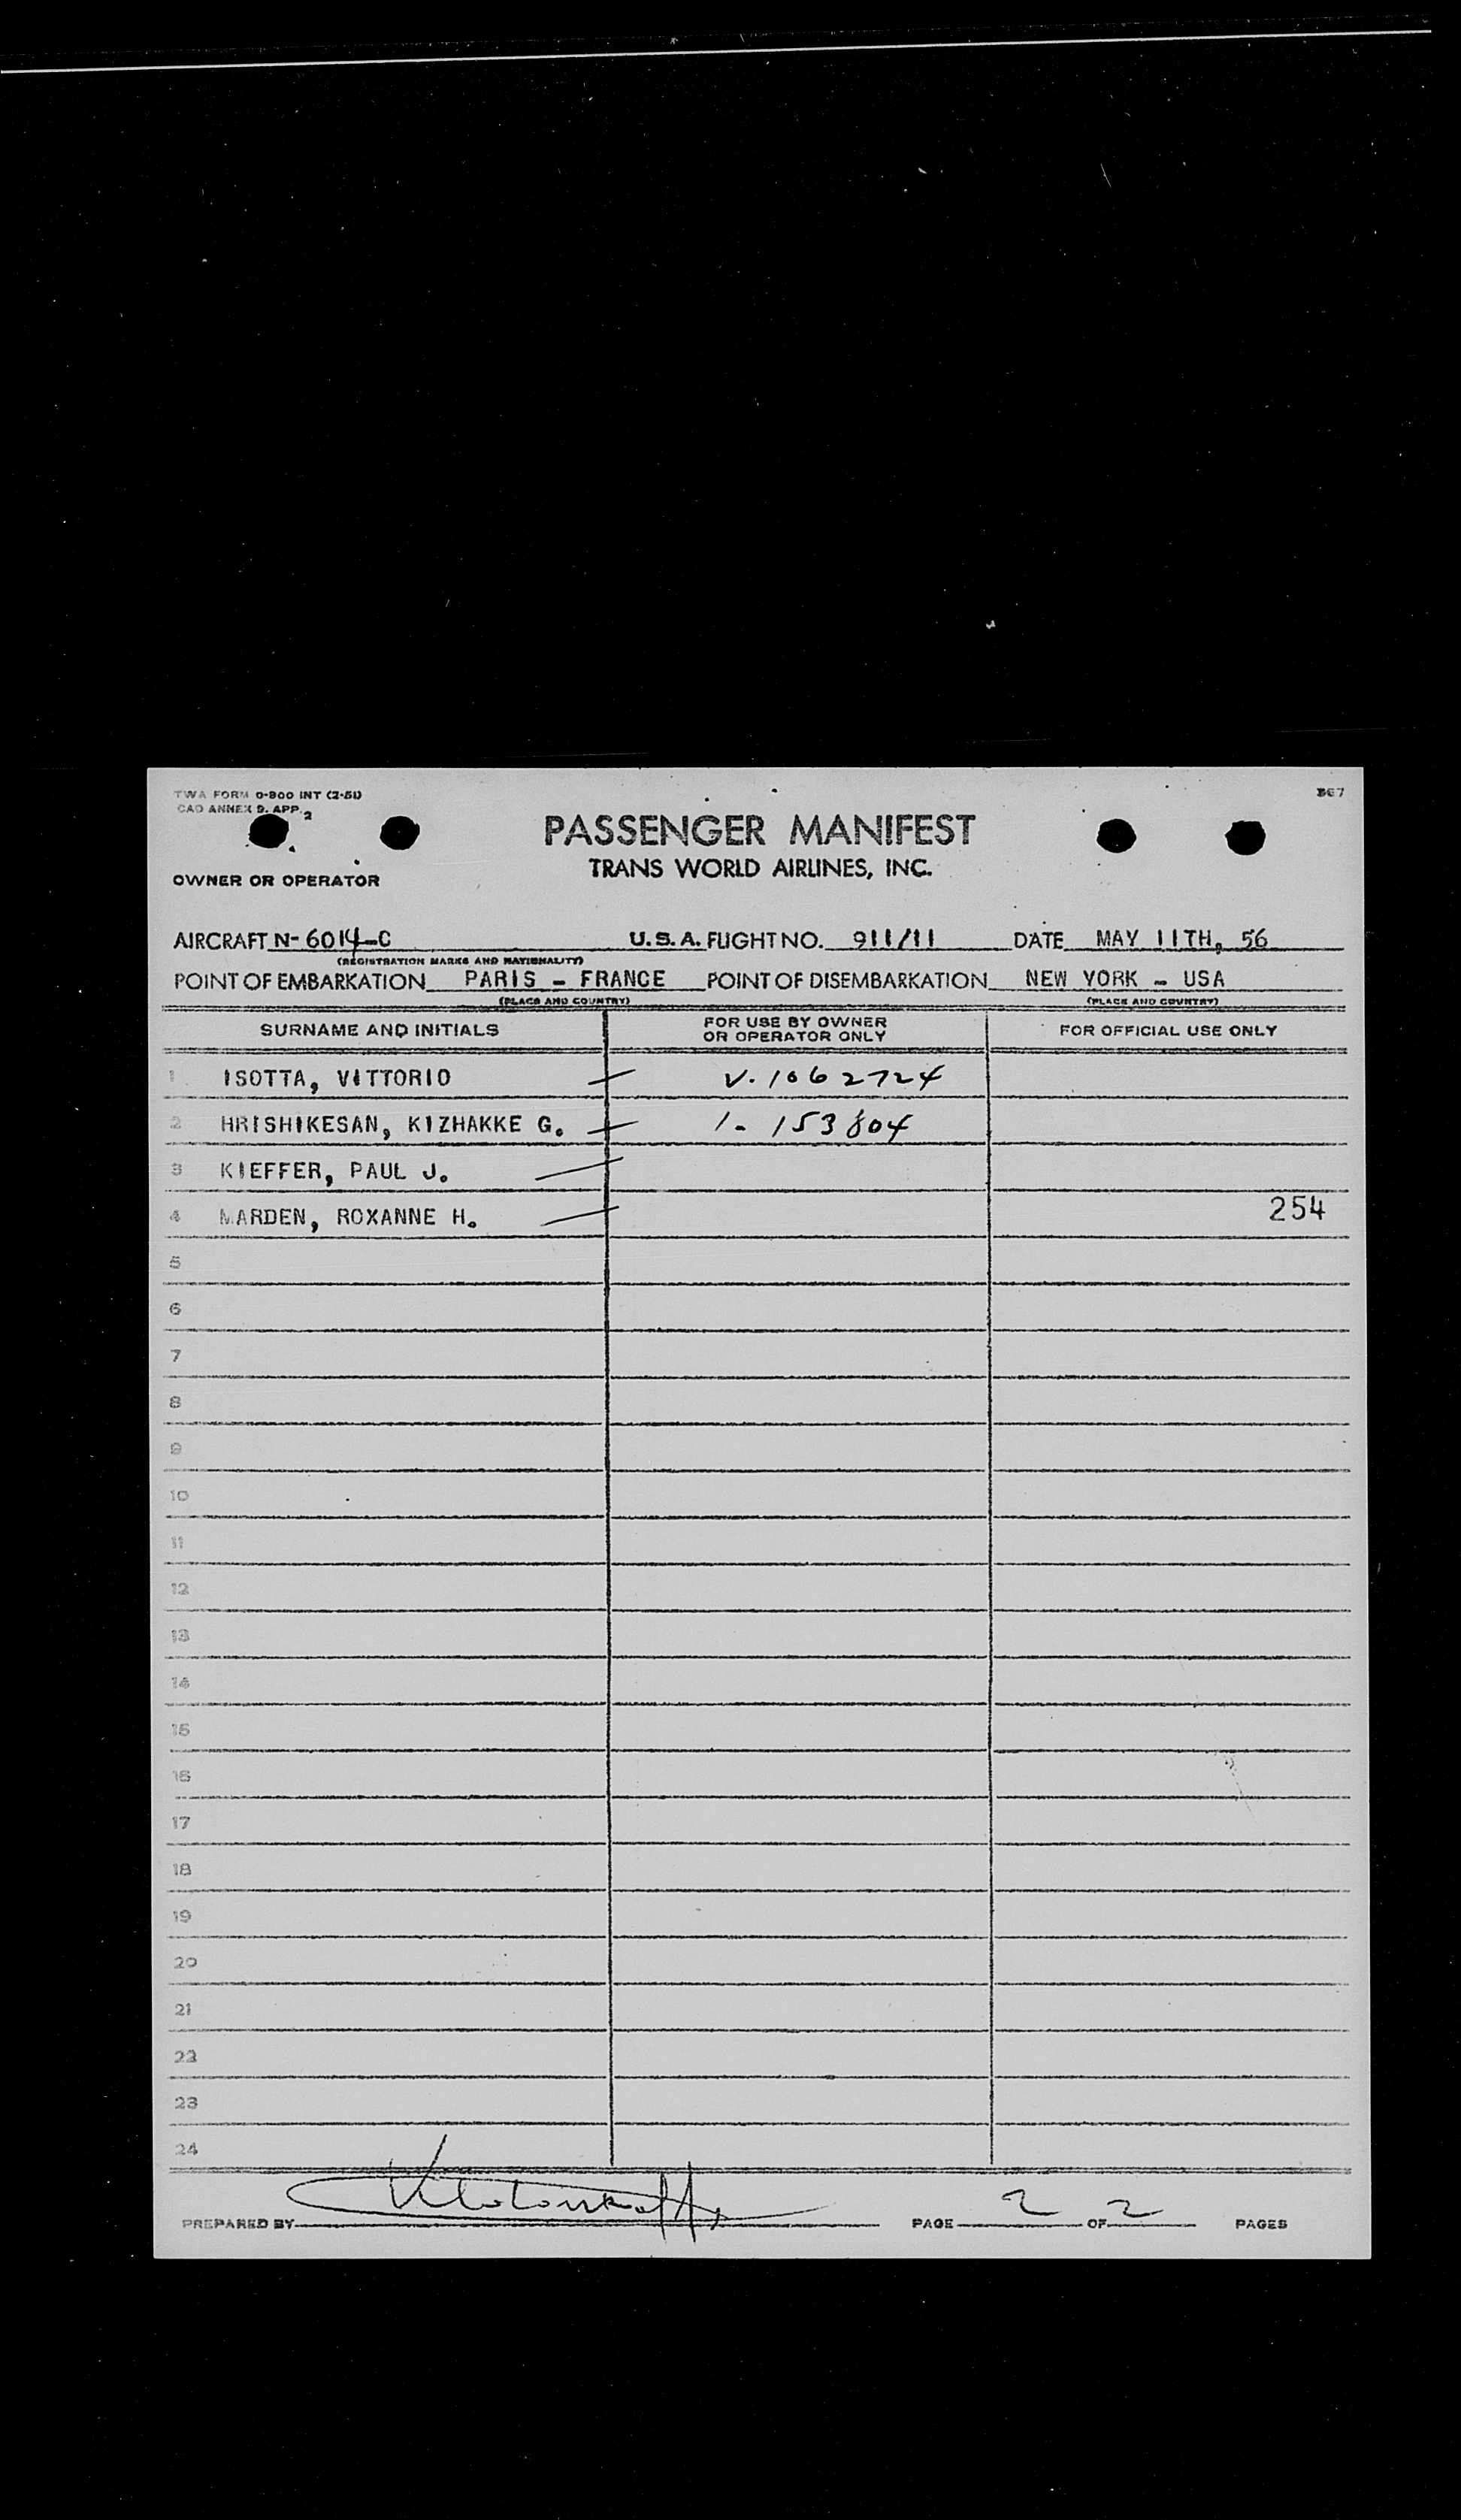 TWA FORM O-800 INT (2-51)
CAO ANNEX 9. APP. 2
367
PASSENGER MANIFEST
TRANS WORLD AIRLINES, INC.
OWNER OR OPERATOR
AIRCRAFT N- 6014-C U.S.A. FLIGHT NO. 911/11 DATE MAY 11TH, 56
(REGISTRATION MARKS AND NATIONALITY)
POINT OF EMBARKATION PARIS - FRANCE POINT OF DISEMBARKATION NEW YORK - USA
(PLACE AND COUNTRY) (PLACE AND COUNTRY)
SURNAME AND INITIALS FOR USE BY OWNER OR OPERATOR ONLY FOR OFFICIAL USE ONLY
1 ISOTTA, VITTORIO V. 1062724
2 HRISHIKESAN, KIZHAKKE G. 1- 153804
3 KIEFFER, PAUL J.
4 MARDEN, ROXANNE H. 254
5
6
7
8
9
10
11
12
13
14
15
16
17
18
19
20
21
22
23
24
PREPARED BY PAGE 2 OF 2 PAGES